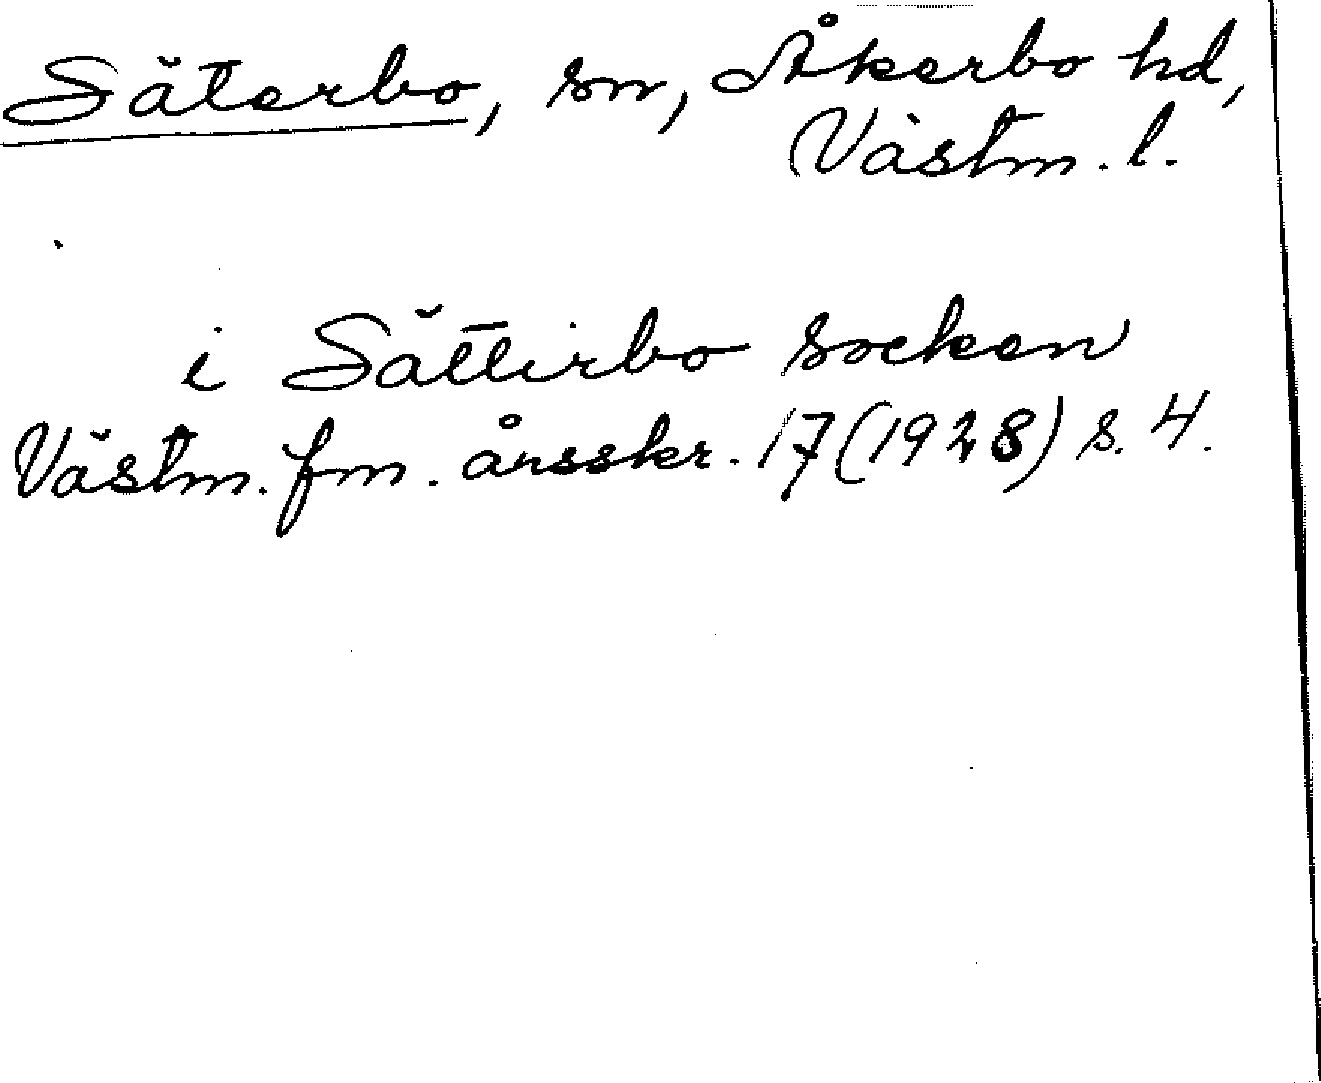 Säterbo, sn, Åkerbo hd,
Västm. l.
i Sättirbo socken
Västm. fm. årsskr. 17 (1928) s. 4.